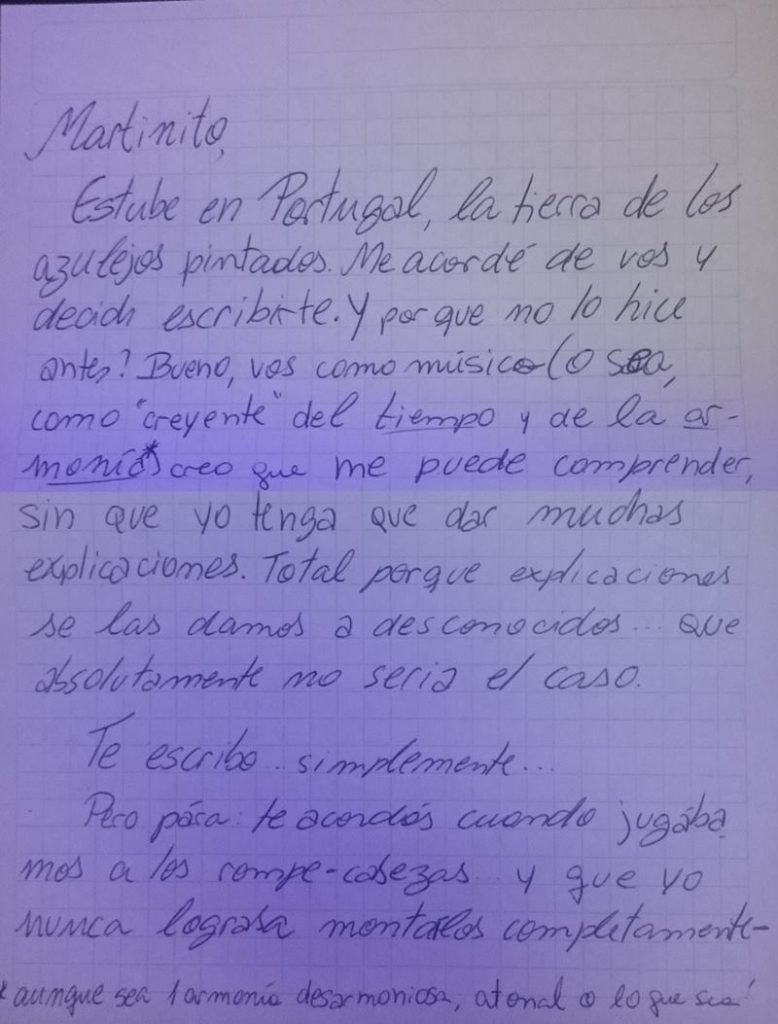 Martinito,
Estube en Portugal, la tierra de los
azulejos pintados. Me acordé de vos y
decidi escribirte. Y por que no lo hice
antes? Bueno, vos como músico (o sea,
como "creyente" del tiempo y de la ar-
monía*) creo que me puede comprender,
sin que yo tenga que dar muchas
explicaciones. Total porque explicaciones
se las damos a desconocidos... que
absolutamente no seria el caso.
Te escribo.. simplemente...
Pero pára: te acordás cuando jugába
mos a los rompe-cabezas... y que yo
nunca lograba montarlos completamente-
* aunque sea 1 armonía desarmoniosa, atonal o lo que sea!